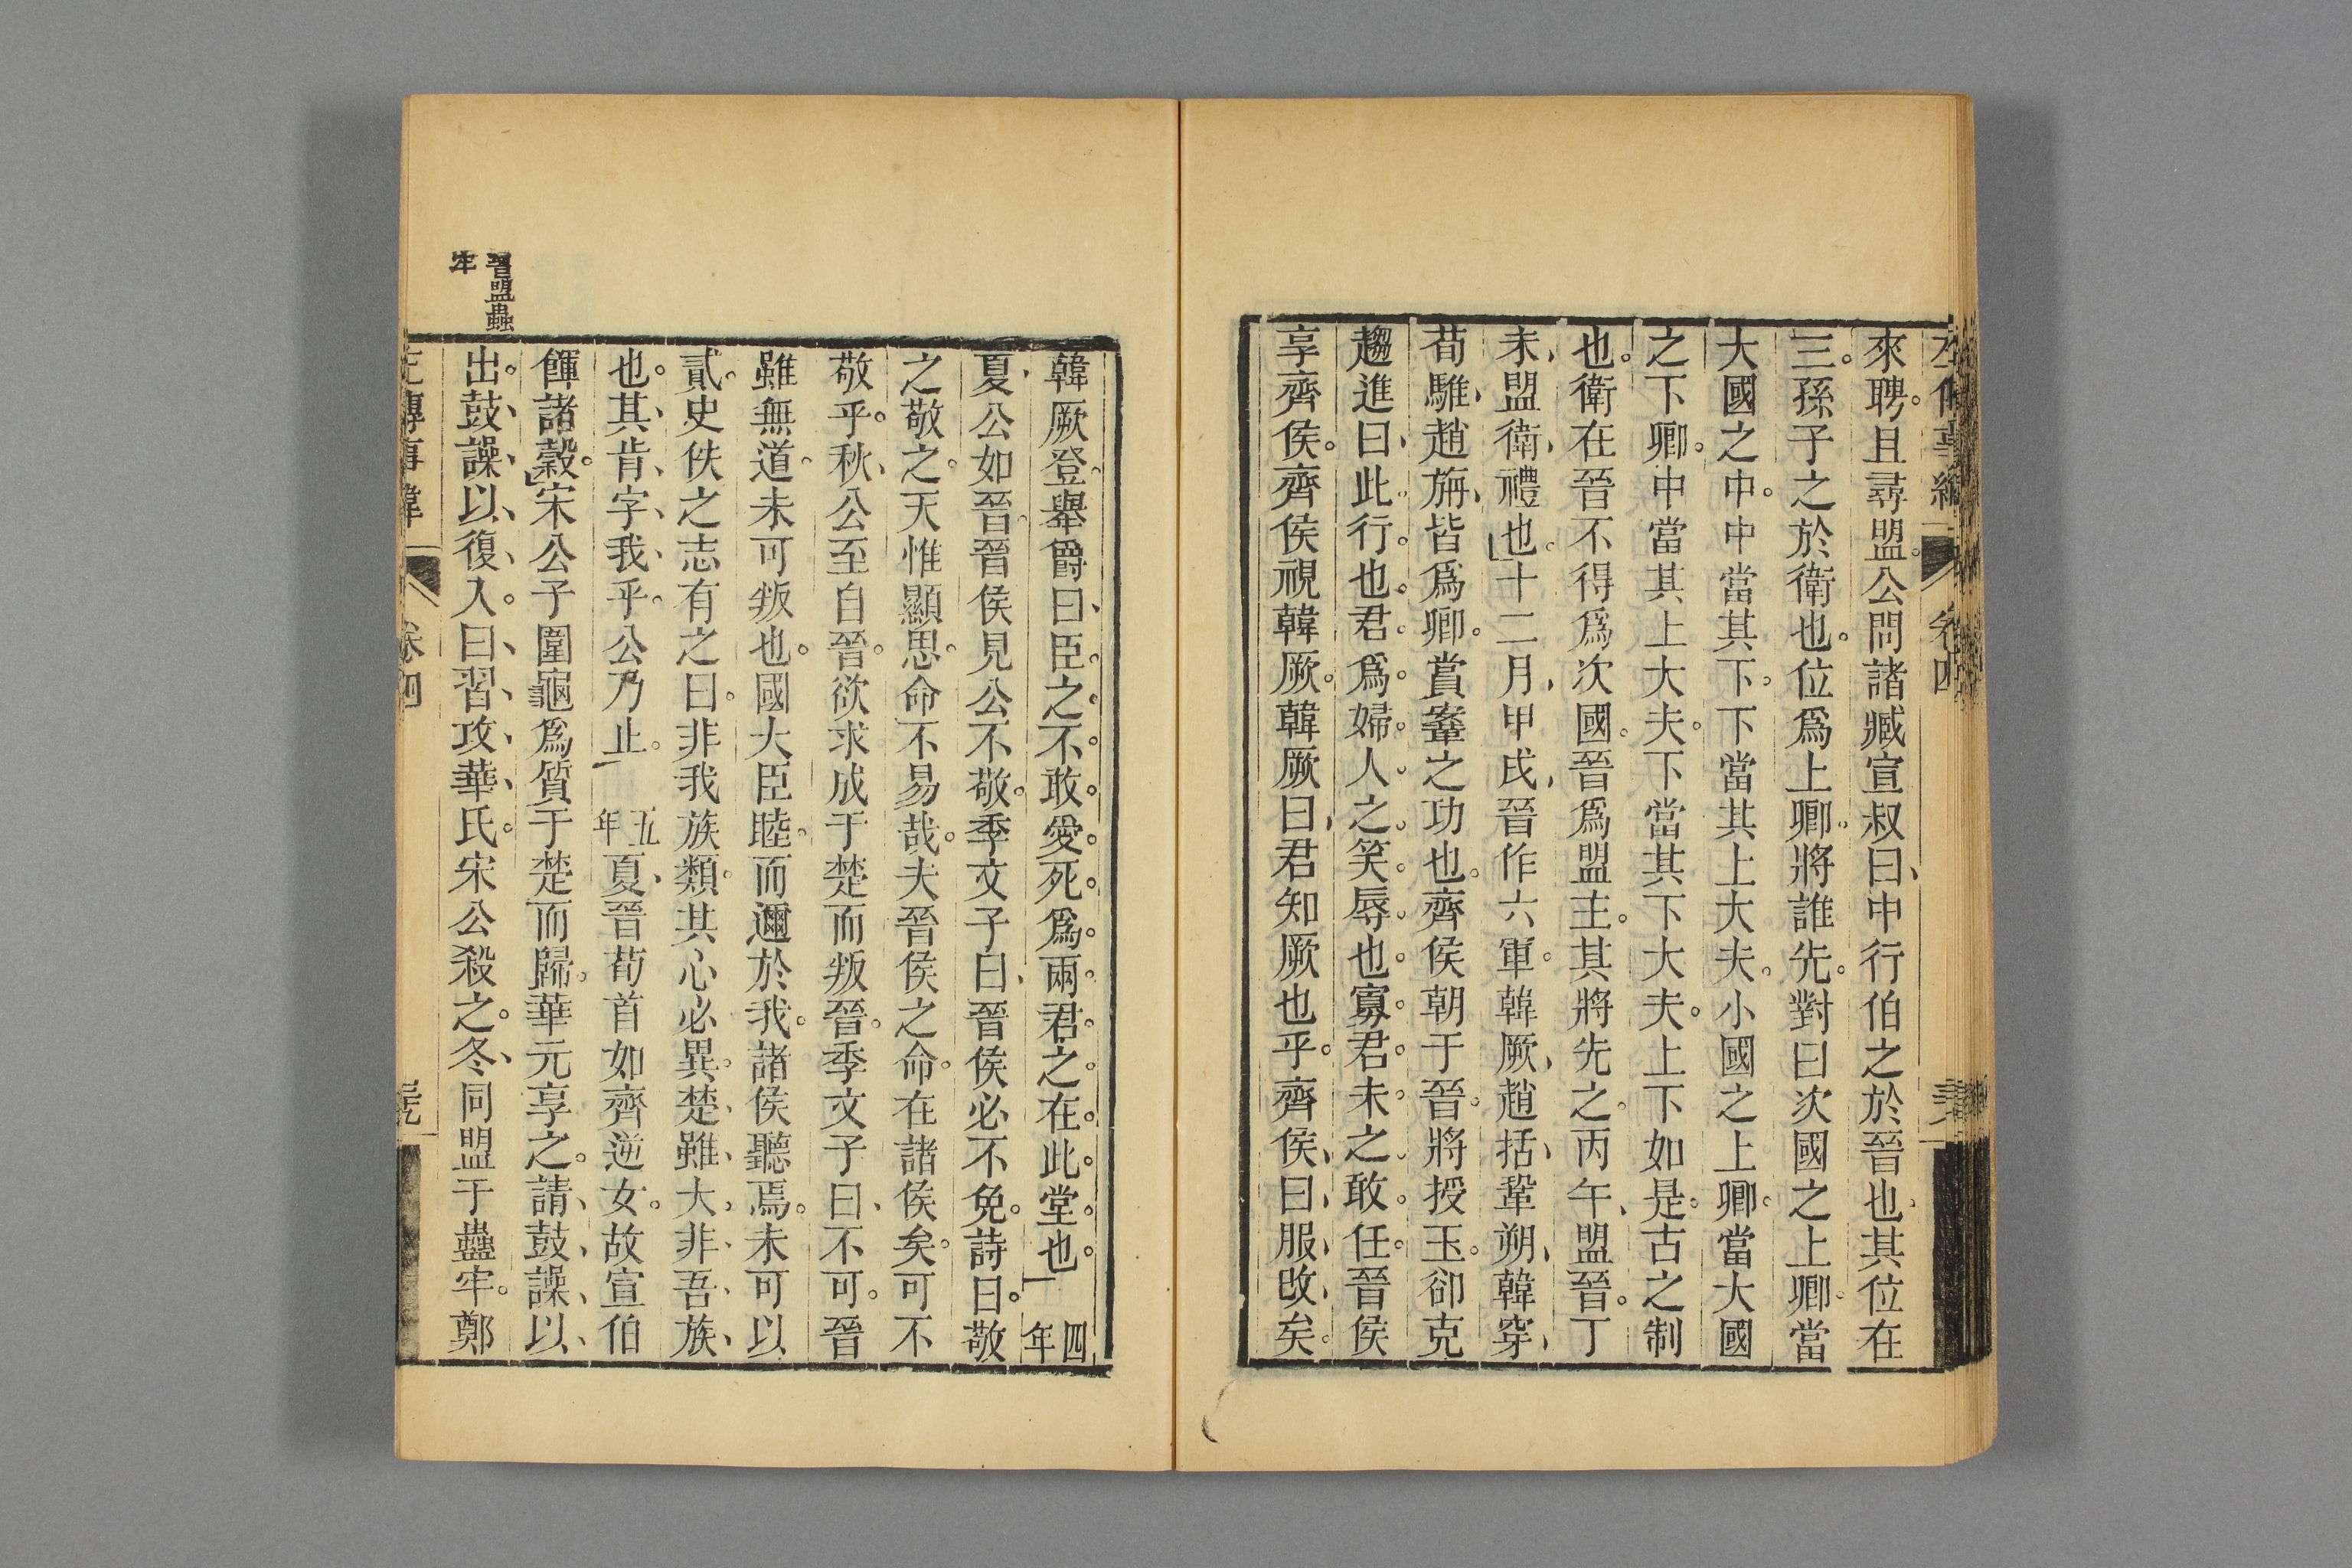 來聘。且尋盟。公問諸臧宣叔曰、中行伯之於晉也、其位在
三。孫子之於衛也。位爲上卿。將誰先。對曰次國之上卿。當
大國之中。中當其下。下當其上大夫。小國之上卿。當大國
之下卿。中當其上大夫。下當其下大夫。上下如是。古之制
也。衛在晉不得爲次國。晉爲盟主。其將先之。丙午、盟晉。丁
未、盟衛、禮也。十二月、甲戌、晉作六軍。韓厥、趙括、鞏朔、韓穿、
荀騅、趙旃、皆爲卿。賞鞌之功也。齊侯朝于晉。將授玉。郤克
趨進曰、此行也。君爲婦人之笑辱也。寡君未之敢任。晉侯
享齊侯。齊侯視韓厥。韓厥曰、君知厥也乎。齊侯、曰、服、改、矣。
韓厥登。舉爵曰、臣之不敢愛死。爲兩君之在此堂也。四年
夏、公如晉。晉侯見公不敬。季文子曰、晉侯必不免。詩曰。敬
之敬之。天惟顯思。命不易哉。夫晉侯之命。在諸侯矣。可不
敬乎。秋、公至自晉。欲求成于楚而叛晉。季文子曰、不可。晉
雖無道。未可叛也。國大臣睦。而邇於我。諸侯聽焉。未可以
貳。史佚之志有之曰。非我族類。其心必異。楚雖大、非吾族、
也。其、肯、字、我、乎。公乃止。五年夏、晉荀首如齊逆女。故宣伯
餫諸穀。宋公子圍龜爲質于楚而歸。華元享之。請鼓、譟、以、
出。鼓、譟、以、復、入。曰、習、攻、華、氏。宋公殺之。冬、同盟于蟲牢。鄭
晉盟蟲
牢
左傳事緯
卷四